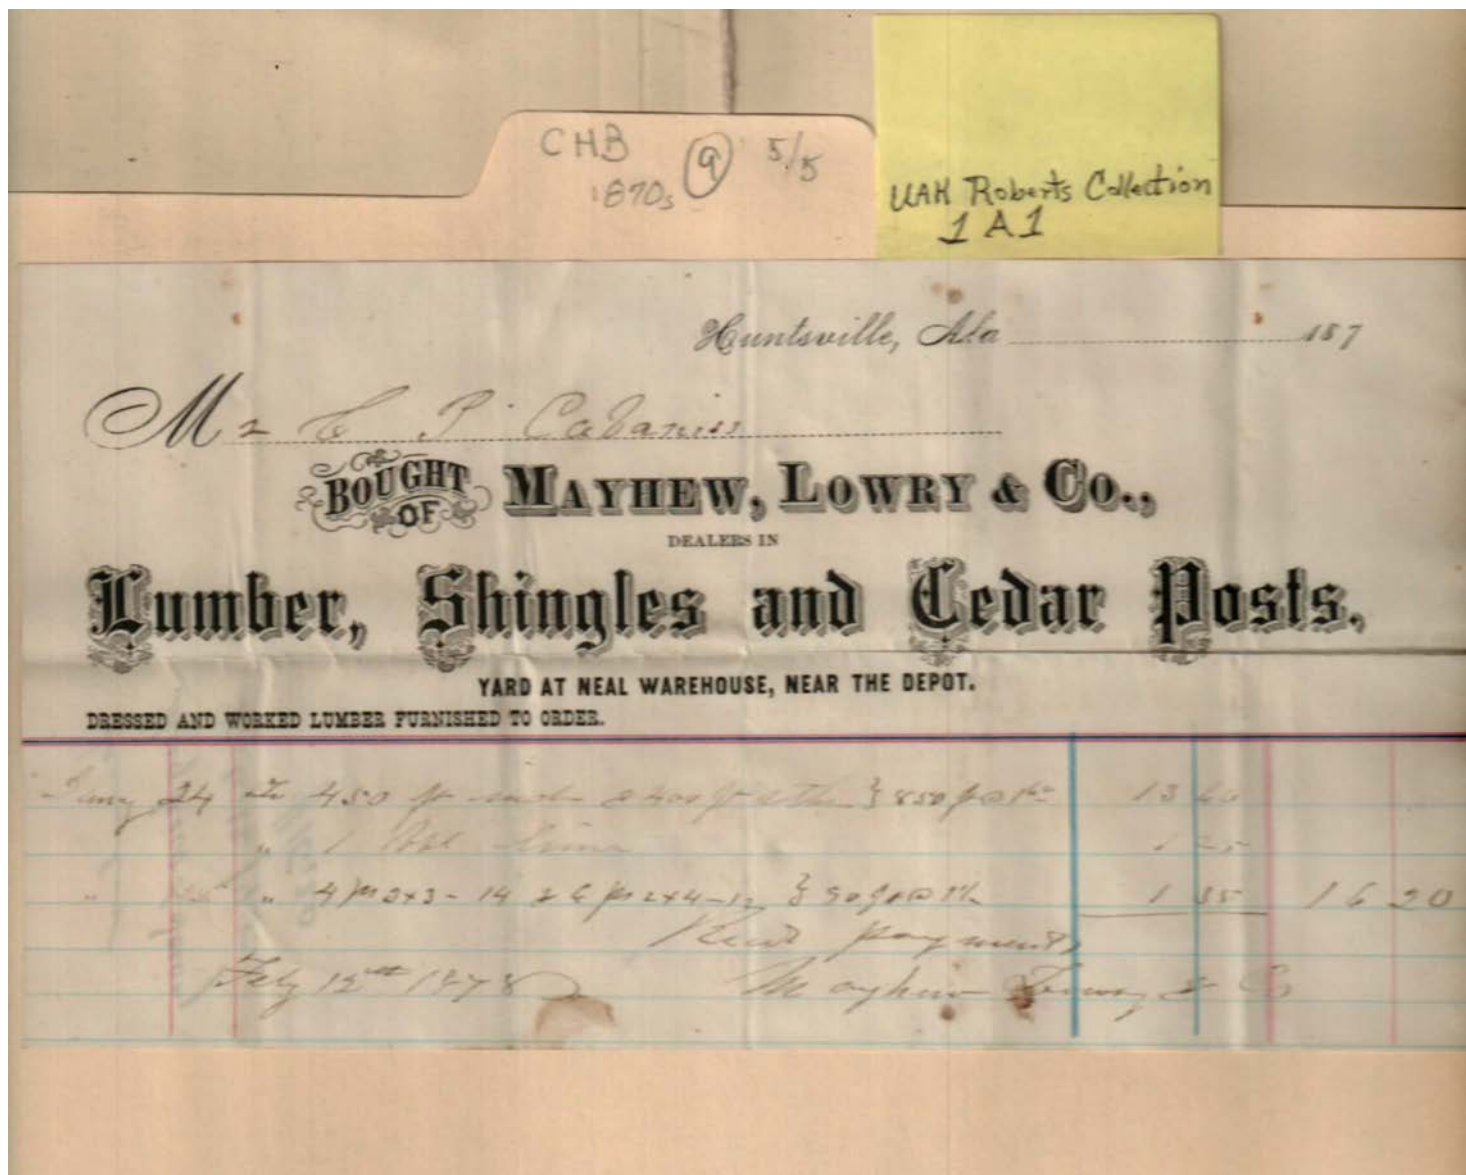 CHB 9 5/5
1870s
UAH Roberts Collection
1 A 1
Huntsville, Ala 187
Mr C P Cabaniss
BOUGHT OF MAYHEW, LOWRY & Co.,
DEALERS IN
Lumber, Shingles and Cedar Posts.
YARD AT NEAL WAREHOUSE, NEAR THE DEPOT.
DRESSED AND WORKED LUMBER FURNISHED TO ORDER.
24 To 450 ft & 400 ft } 850 ft @ 13 60
" 1 Bbl Lime 1 25
" " 4 ps 2x3-14 & 6 ps 2x4-12 } 90 ft @ 1 35 16 20
Recd payment
Feby 12th 1878 Mayhew Lowry & Co